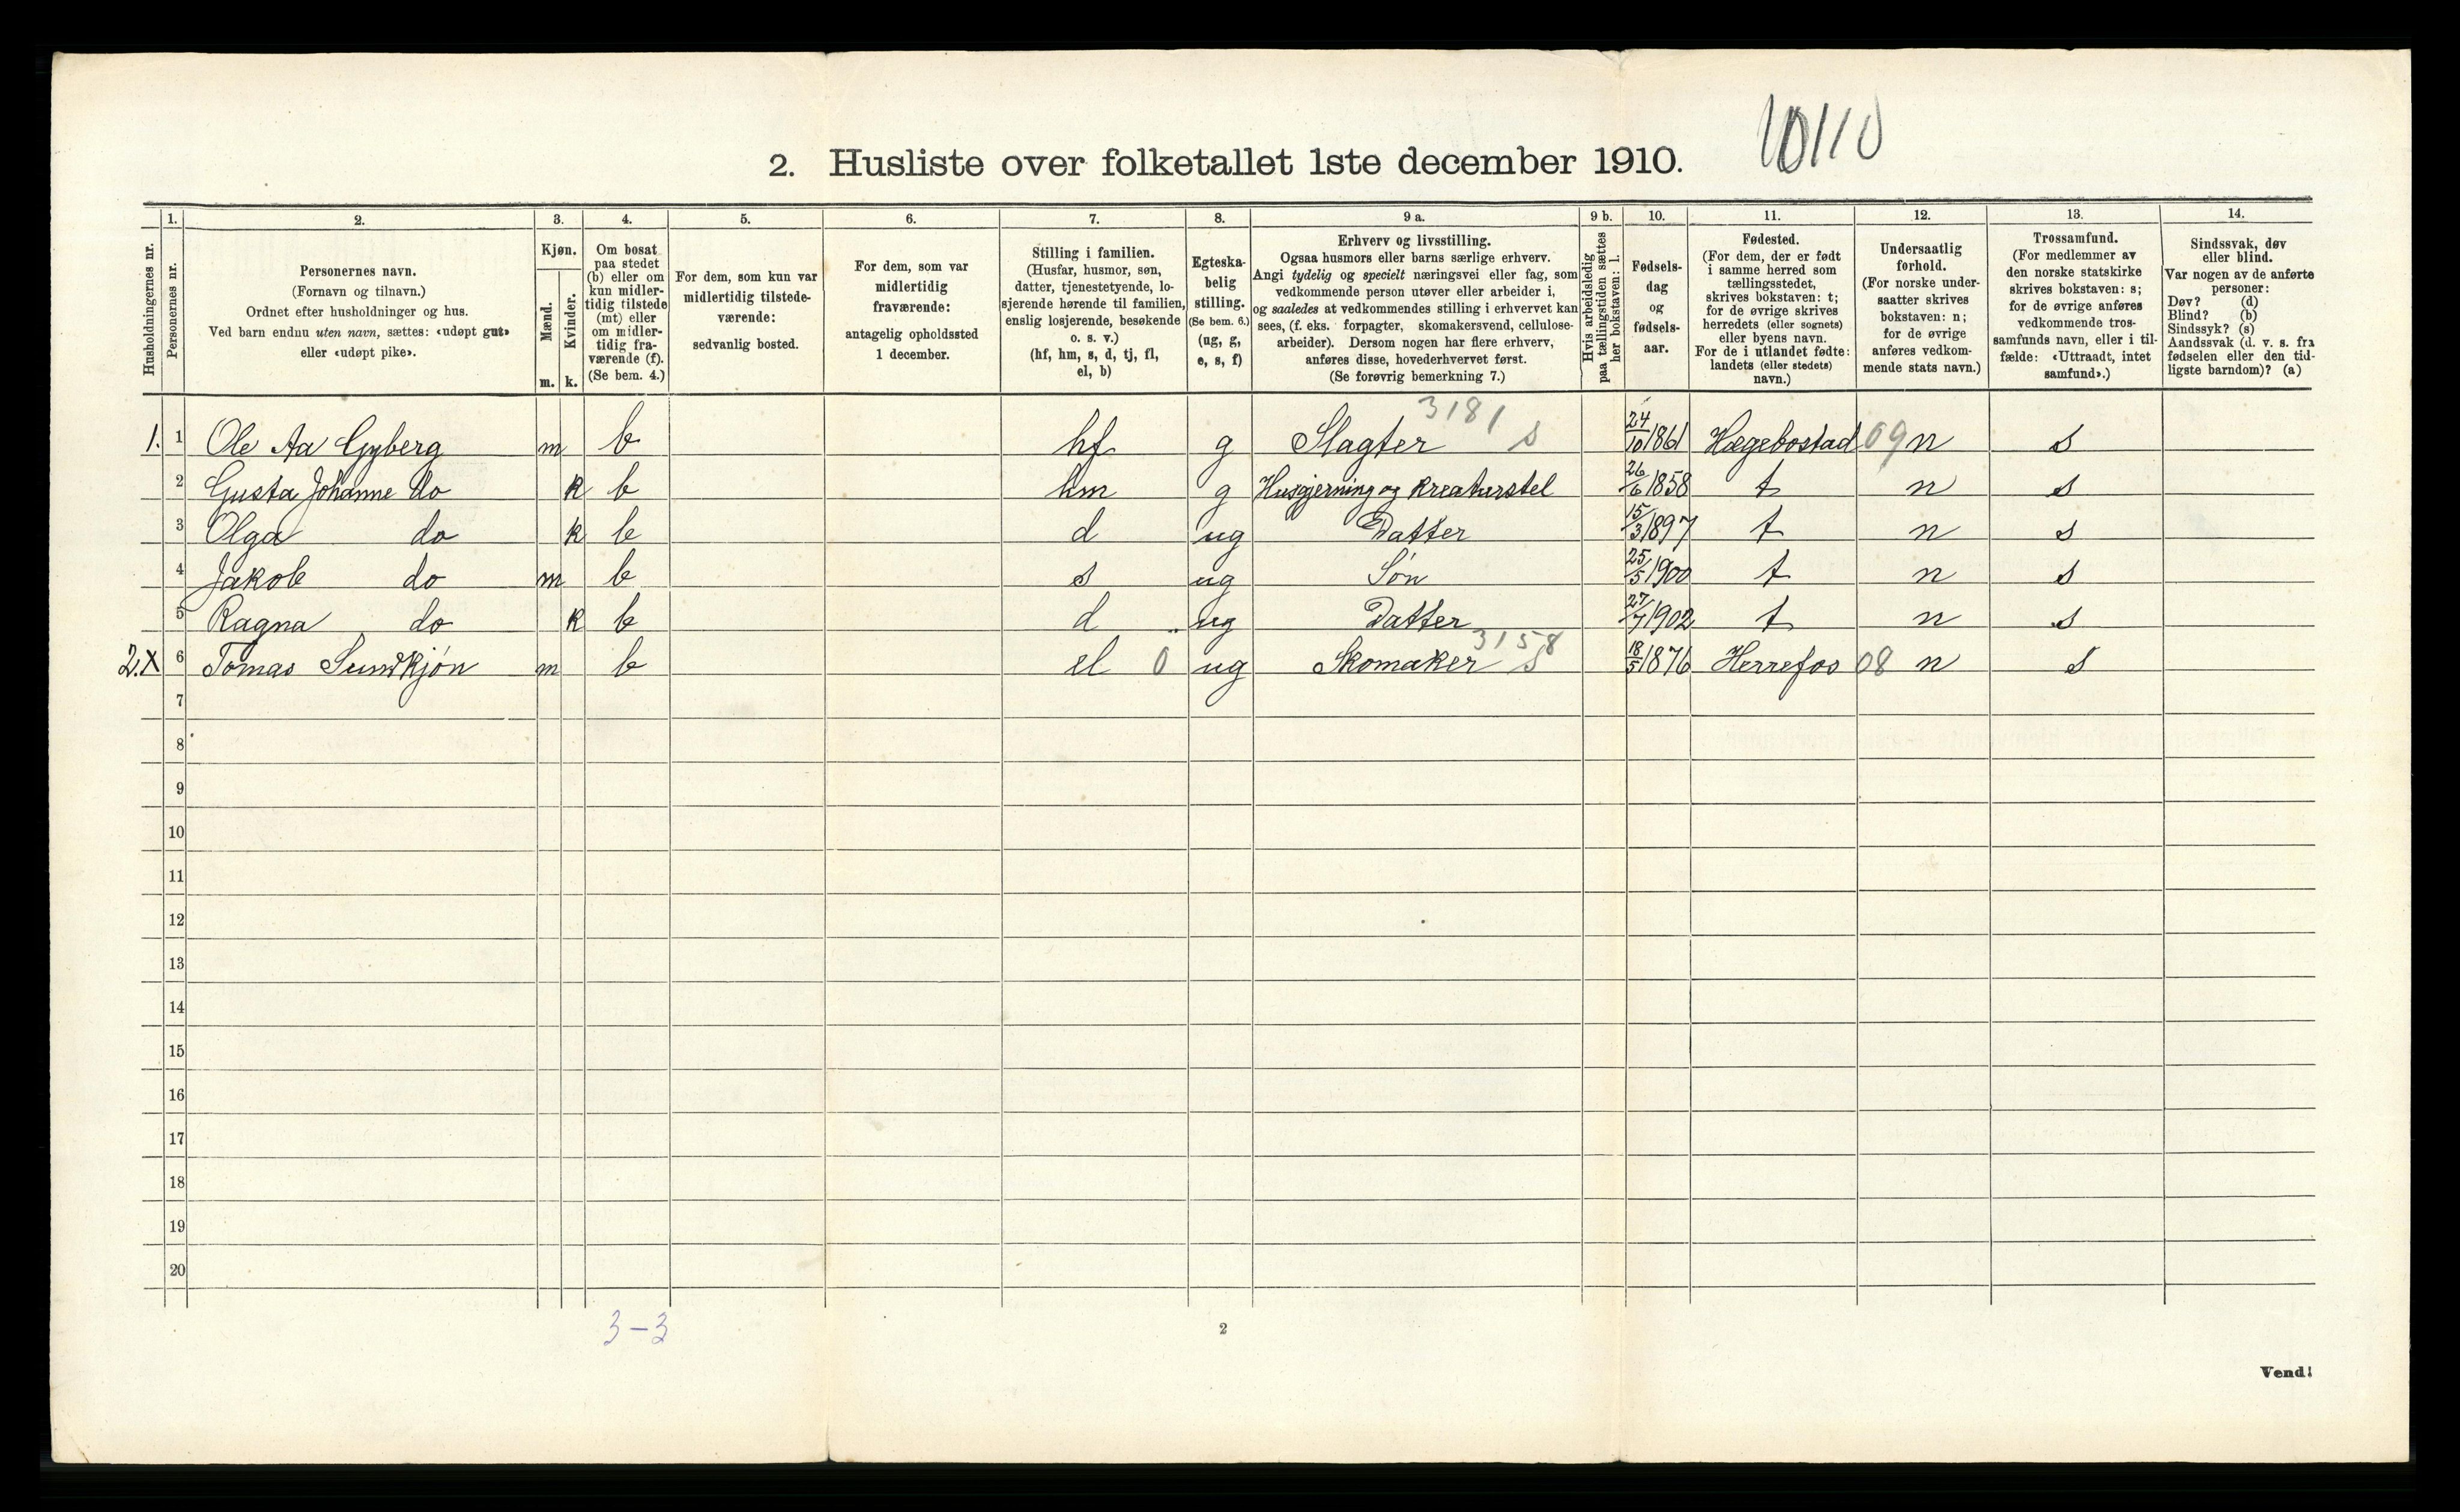 10110
2. Husliste over folketallet 1ste december 1910.
1. 2. 3. 4. 5. 6. 7. 8. 9 a. 9 b. 10. 11. 12. 13. 14.
Husholdningernes nr.
Personernes nr.
Personernes navn.
(Fornavn og tilnavn.)
Ordnet efter husholdninger og hus.
Ved barn endnu uten navn, sættes: «udøpt gut»
eller «udøpt pike».
Kjøn.
Mænd.
Kvinder.
m. k.
Om bosat
paa stedet
(b) eller om
kun midler-
tidig tilstede
(mt) eller
om midler-
tidig fra-
værende (f).
(Se bem. 4.)
For dem, som kun var
midlertidig tilstede-
værende:
sedvanlig bosted.
For dem, som var
midlertidig
fraværende:
antagelig opholdssted
1 december.
Stilling i familien.
(Husfar, husmor, søn,
datter, tjenestetyende, lo-
sjerende hørende til familien,
enslig losjerende, besøkende
o. s. v.)
(hf, hm, s, d, tj, fl,
el, b)
Egteska-
belig
stilling.
(Se bem. 6.)
(ug, g,
e, s, f)
Erhverv og livsstilling.
Ogsaa husmors eller barns særlige erhverv.
Angi tydelig og specielt næringsvei eller fag, som
vedkommende person utøver eller arbeider i,
og saaledes at vedkommendes stilling i erhvervet kan
sees, (f. eks. forpagter, skomakersvend, cellulose-
arbeider). Dersom nogen har flere erhverv,
anføres disse, hovederhvervet først.
(Se forøvrig bemerkning 7.)
Hvis arbeidsledig
paa tællingstiden sættes
her bokstaven: l.
Fødsels-
dag
og
fødsels-
aar.
Fødested.
(For dem, der er født
i samme herred som
tællingsstedet,
skrives bokstaven: t;
for de øvrige skrives
herredets (eller sognets)
eller byens navn.
For de i utlandet fødte:
landets (eller stedets)
navn.)
Undersaatlig
forhold.
(For norske under-
saatter skrives
bokstaven: n;
for de øvrige
anføres vedkom-
mende stats navn.)
Trossamfund.
(For medlemmer av
den norske statskirke
skrives bokstaven: s;
for de øvrige anføres
vedkommende tros-
samfunds navn, eller i til-
fælde: «Uttraadt, intet
samfund».)
Sindssvak, døv
eller blind.
Var nogen av de anførte
personer:
Døv? (d)
Blind? (b)
Sindssyk? (s)
Aandssvak (d. v. s. fra
fødselen eller den tid-
ligste barndom)? (a)
3181
1. 1 Ole Aa Gyberg m b hf g Slagter s 24/10 1861 Hægebostad 09 n s
2 Gusta Johanne do k b hm g Husgjerning og Kreaturstel 26/6 1858 t n s
3 Olga do k b d ug Datter 15/3 1897 t n s
4 Jakob do m b s ug Søn 25/5 1900 t n s
5 Ragna do k b d ug Datter 27/7 1902 t n s
3158
2. X 6 Tomas Sundkjøn m b el 0 ug Skomaker s 18/5 1876 Herrefos 08 n s
7
8
9
10
11
12
13
14
15
16
17
18
19
20
3-3
2
Vend!